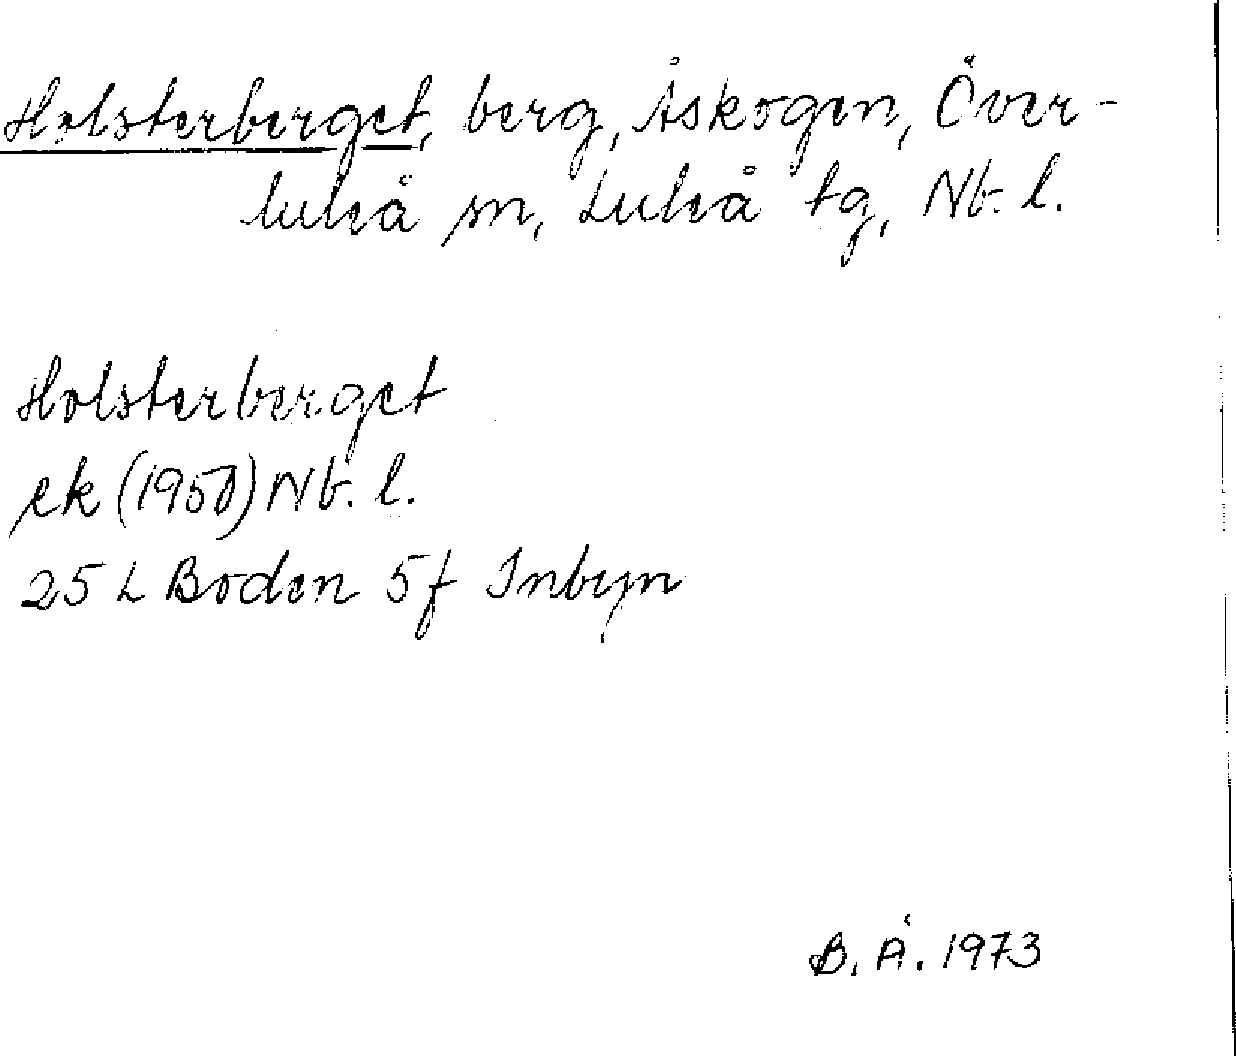 Holsterberget, berg, Åskogen, Över-
luleå sn, Luleå tg, Nb. l.
Holsterberget
ek (1950) Nb. l.
25 L Boden 5f Inbyn
B. Å. 1973